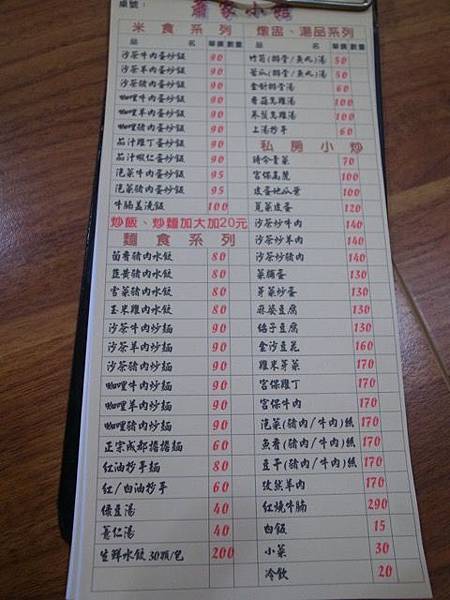 桌號：
蕭家小館
米食系列
品 名 單價 數量
沙茶牛肉蛋炒飯 90
沙茶羊肉蛋炒飯 90
沙茶豬肉蛋炒飯 90
咖哩牛肉蛋炒飯 90
咖哩羊肉蛋炒飯 90
咖哩豬肉蛋炒飯 90
茄汁雞丁蛋炒飯 90
茄汁蝦仁蛋炒飯 90
泡菜牛肉蛋炒飯 95
泡菜豬肉蛋炒飯 95
牛腩蓋澆飯 100
炒飯、炒麵加大加20元
麵食系列
茴香豬肉水餃 80
韭黃豬肉水餃 80
雪菜豬肉水餃 80
玉米雞肉水餃 80
沙茶牛肉炒麵 90
沙茶羊肉炒麵 90
沙茶豬肉炒麵 90
咖哩牛肉炒麵 90
咖哩羊肉炒麵 90
咖哩豬肉炒麵 90
正宗成都擔擔麵 60
紅油抄手麵 80
紅/白油抄手 60
綠豆湯 40
薏仁湯 40
生鮮水餃 30顆/包 200
燉盅、湯品系列
品 名 單價 數量
竹筍(排骨/魚丸)湯 50
苦瓜(排骨/魚丸)湯 50
金針排骨湯 60
香菇烏雞湯 100
茶葉烏雞湯 100
上湯抄手 60
私房小炒
時令青菜 70
宮保高麗 100
皮蛋地瓜葉 100
莧菜皮蛋 120
沙茶炒牛肉 140
沙茶炒羊肉 140
沙茶炒豬肉 140
菜脯蛋 130
芽菜炒蛋 130
麻婆豆腐 130
鴿子豆腐 130
金沙豆花 160
雞米芽菜 170
宮保雞丁 170
宮保牛肉 170
泡菜(豬肉/牛肉)絲 170
魚香(豬肉/牛肉)絲 170
豆干(豬肉/牛肉)絲 170
孜然羊肉 170
紅燒牛腩 290
白飯 15
小菜 30
冷飲 20